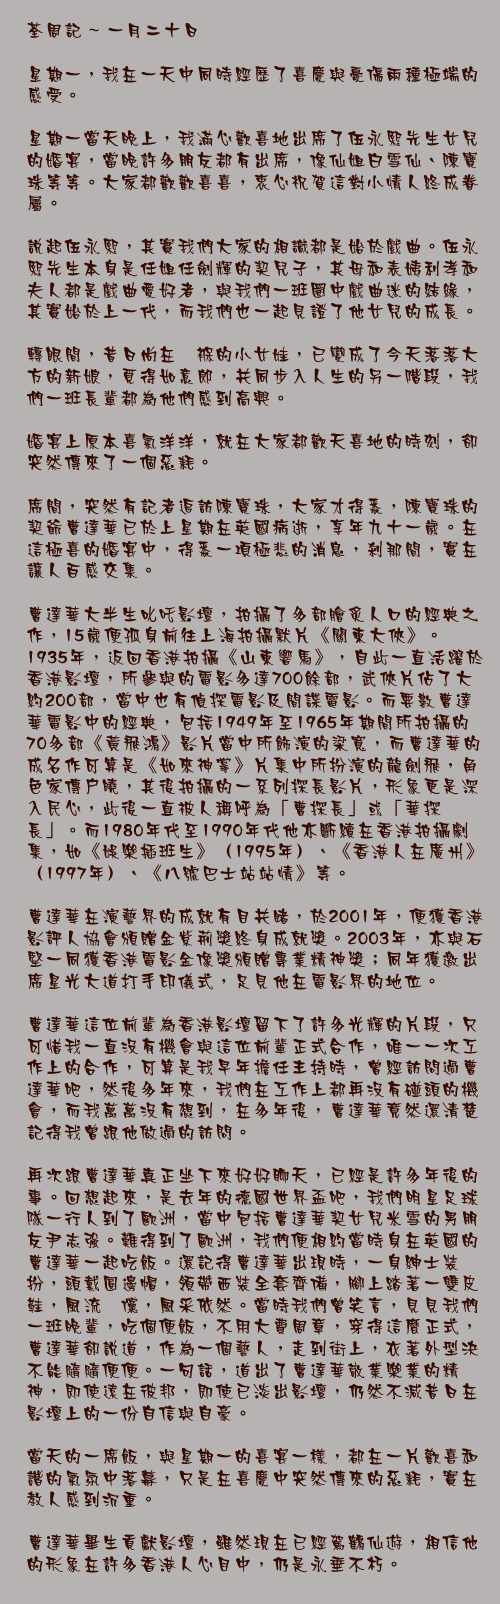 荃周記 ~ 一月二十日
星期一，我在一天中同時經歷了喜慶與憂傷兩種極端的
感受。
星期一當天晚上，我滿心歡喜地出席了伍永熙先生女兒
的婚宴，當晚許多朋友都有出席，像仙姐白雪仙、陳寶
珠等等。大家都歡歡喜喜，衷心祝賀這對小情人終成眷
屬。
說起伍永熙，其實我們大家的相識都是始於戲曲。伍永
熙先生本身是任姐任劍輝的契兒子，其母和表姨利孝和
夫人都是戲曲愛好者，與我們一班圈中戲曲迷的結緣，
其實始於上一代，而我們也一起見證了他女兒的成長。
轉眼間，昔日尚在 褓的小女娃，已變成了今天落落大
方的新娘，覓得如意郎，共同步入人生的另一階段，我
們一班長輩都為他們感到高興。
婚宴上原本喜氣洋洋，就在大家都歡天喜地的時刻，卻
突然傳來了一個惡耗。
席間，突然有記者追訪陳寶珠，大家才得悉，陳寶珠的
契爺曹達華已於上星期在英國病逝，享年九十一歲。在
這極喜的婚宴中，得悉一項極悲的消息，剎那間，實在
讓人百感交集。
曹達華大半生叱吒影壇，拍攝了多部膾炙人口的經典之
作，15歲便孤身前往上海拍攝默片《關東大俠》。
1935年，返回香港拍攝《山東響馬》，自此一直活躍於
香港影壇，所參與的電影多達700餘部，武俠片佔了大
約200部，當中也有偵探電影及間諜電影。而要數曹達
華電影中的經典，包括1949年至1965年期間所拍攝的
70多部《黃飛鴻》影片當中所飾演的梁寬，而曹達華的
成名作可算是《如來神掌》片集中所扮演的龍劍飛，角
色家傳戶曉，其後拍攝的一系列探長影片，形象更是深
入民心，此後一直被人稱呼為「曹探長」或「華探
長」。而1980年代至1990年代他亦斷續在香港拍攝劇
集，如《娛樂插班生》（1995年）、《香港人在廣州》
（1997年）、《八號巴士站站情》等。
曹達華在演藝界的成就有目共睹，於2001年，便獲香港
影評人協會頒贈金紫荊獎終身成就獎。2003年，亦與石
堅一同獲香港電影金像獎頒贈專業精神獎；同年獲邀出
席星光大道打手印儀式，足見他在電影界的地位。
曹達華這位前輩為香港影壇留下了許多光輝的片段，只
可惜我一直沒有機會與這位前輩正式合作，唯一一次工
作上的合作，可算是我早年擔任主持時，曾經訪問過曹
達華吧，然後多年來，我們在工作上都再沒有碰頭的機
會，而我萬萬沒有想到，在多年後，曹達華竟然還清楚
記得我曾跟他做過的訪問。
再次跟曹達華真正坐下來好好聊天，已經是許多年後的
事。回想起來，是去年的德國世界盃吧，我們明星足球
隊一行人到了歐洲，當中包括曹達華契女兒米雪的男朋
友尹志強。難得到了歐洲，我們便相約當時身在英國的
曹達華一起吃飯。還記得曹達華出現時，一身紳士裝
扮，頭戴圓邊帽，領帶西裝全套齊備，腳上踏著一雙皮
鞋，風流 儻，風采依然。當時我們曾笑言，見見我們
一班晚輩，吃個便飯，不用大費周章，穿得這麼正式，
曹達華卻說道，作為一個藝人，走到街上，衣著外型決
不能隨隨便便。一句話，道出了曹達華敬業樂業的精
神，即使遠在彼邦，即使已淡出影壇，仍然不減昔日在
影壇上的一份自信與自豪。
當天的一席飯，與星期一的喜宴一樣，都在一片歡喜和
諧的氣氛中落幕，只是在喜慶中突然傳來的惡耗，實在
教人感到沉重。
曹達華畢生貢獻影壇，雖然現在已經駕鶴仙遊，相信他
的形象在許多香港人心目中，仍是永垂不朽。